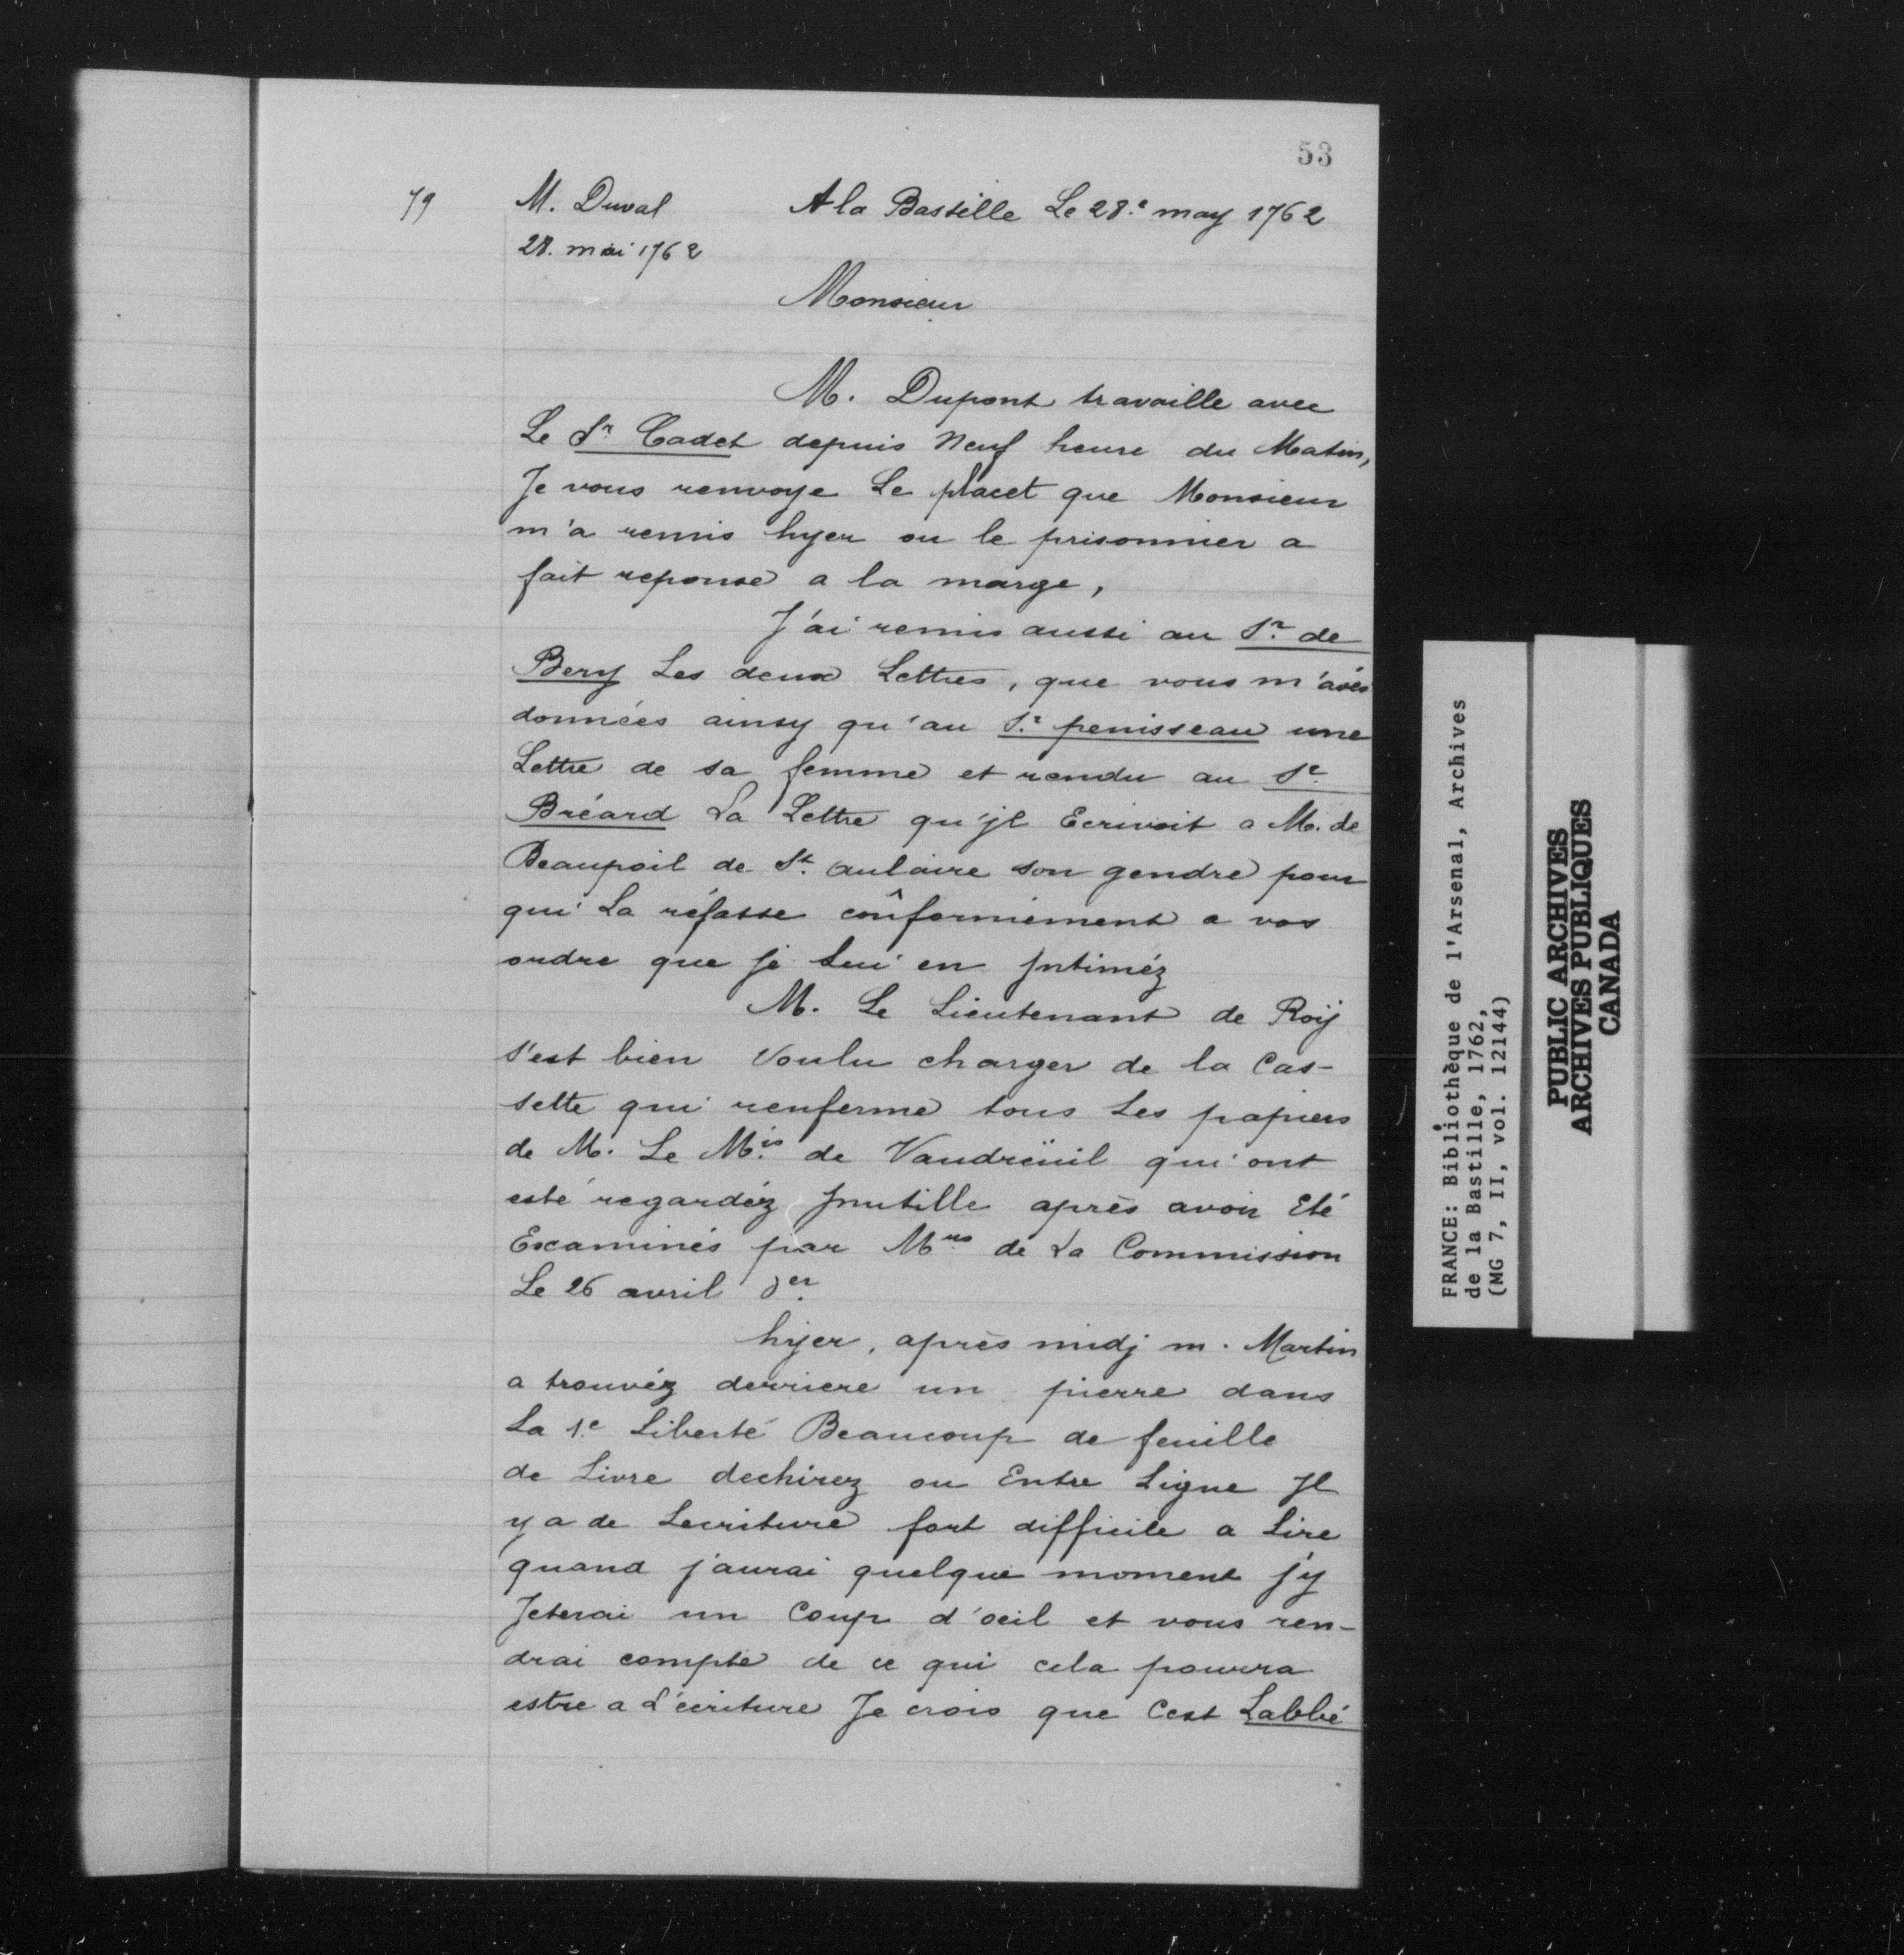 53
79
M. Duval
A la Bastille Le 28.e may 1762
28. mai 1762
Monsieur
M. Dupont travaille avec
Le Sr. Cadet depuis Neuf heure du Matin,
Je vous renvoye Le placet que Monsieur
m'a remis hyer ou le prisonnier a
fait reponse a la marge,
J'ai remis aussi au Sr. de
Bery Les deux Lettres, que vous m'avés
données ainsy qu'au Sr. penisseau une
Lettre de sa femme et rendu au Sr.
Bréard La Lettre qu'jl Ecrivoit a M. de
Beaupoil de St. aulaire son gendre pour
qui La réfasse conformément a vos
ordre que je Lui en jntiméz
M. Le Lieutenant de Roÿ
s'est bien voulu charger de la Cas-
sette qui renferme tous Les papiers
de M. Le Mis. de Vaudreüil qui ont
esté regardéz jnutille après avoir Eté
Examinés par Mrs. de La Commission
Le 26 avril der.
hyer, après midj m. Martin
a trouvéz derriere un pierre dans
La 1.e Liberté Beaucoup de feuille
de Livre dechirez ou Entre Ligne Jl
y a de Lecriture fort difficile a Lire
quand j'aurai quelque moment j'y
Jeterai un Coup d'oeil et vous ren-
drai compte de ce qui cela pourra
estre a L'écriture Je crois que Cest Labbé
FRANCE: Bibliothèque de l'Arsenal, Archives
de la Bastille, 1762,
(MG 7, II, vol. 12144)
PUBLIC ARCHIVES
ARCHIVES PUBLIQUES
CANADA